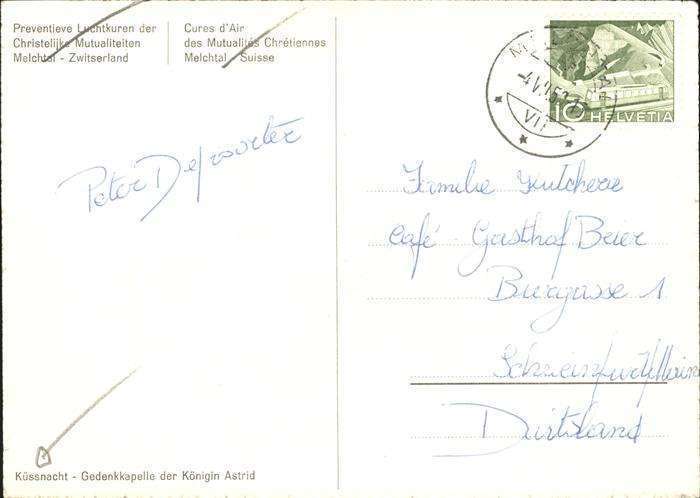 Preventieve Luchtkuren der
Christelijke Mutualiteiten
Melchtal - Zwitserland
Cures d'Air
des Mutualités Chrétiennes
Melchtal - Suisse
10 HELVETIA
VII
Peter
Familie
Café - Gasthof Beier
Burgasse 1
Schweinfurt/Main
Duitsland
Küssnacht - Gedenkkapelle der Königin Astrid